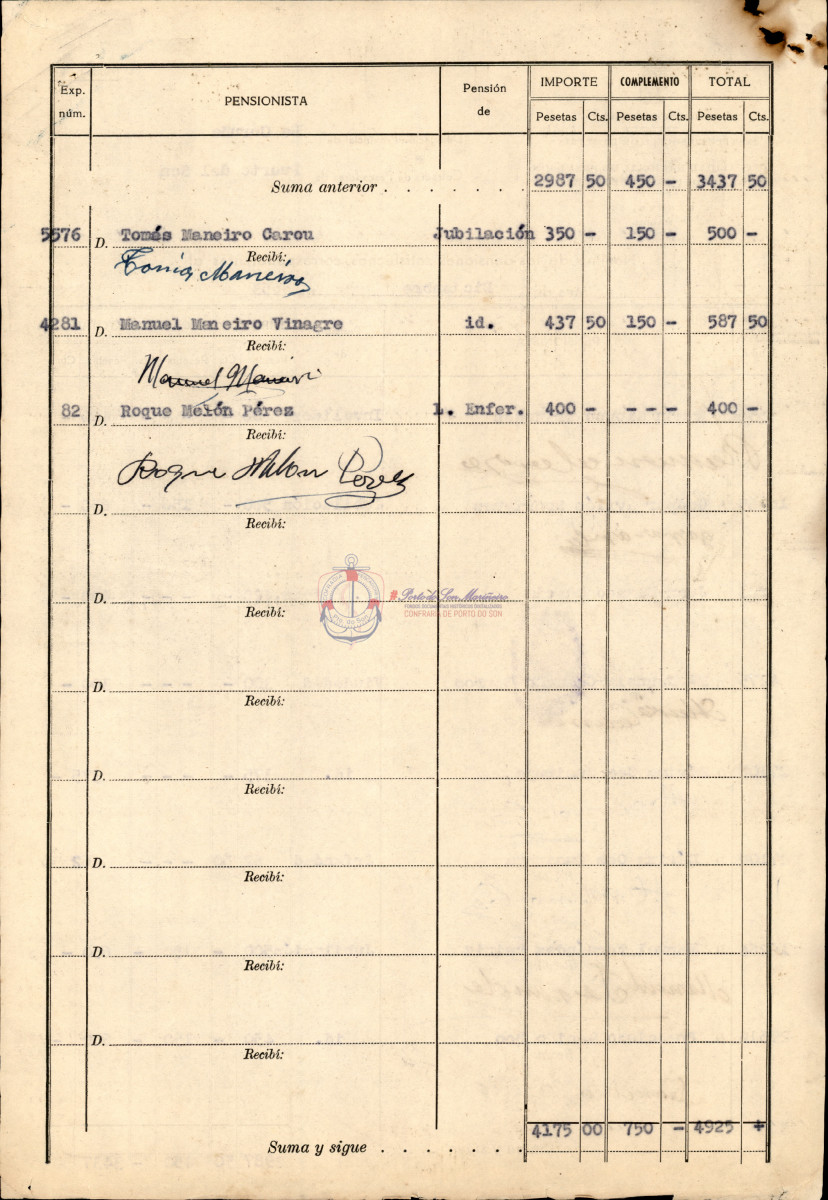 Exp. núm. PENSIONISTA Pensión de IMPORTE COMPLEMENTO TOTAL
Pesetas Cts. Pesetas Cts. Pesetas Cts.
Suma anterior . . . . . . . 2987 50 450 - 3437 50
5576 D. Tomás Maneiro Carou Jubilación 350 - 150 - 500 -
Recibí:
Maneiro
4281 D. Manuel Maneiro Vinagre id. 437 50 150 - 587 50
Recibí:
Manuel Maneiro
82 D. Roque Melón Pérez L. Enfer. 400 - - - - 400 -
Recibí:
Roque Melon Perez
D.
Recibí:
D.
Recibí:
#Porto do Son Mariñeiro
FONDOS DOCUMENTAIS HISTÓRICOS DIXITALIZADOS
CONFRARÍA DE PORTO DO SON
Pto. do Son
D.
Recibí:
D.
Recibí:
D.
Recibí:
D.
Recibí:
D.
Recibí:
Suma y sigue . . . . . . . 4175 00 750 - 4925 +